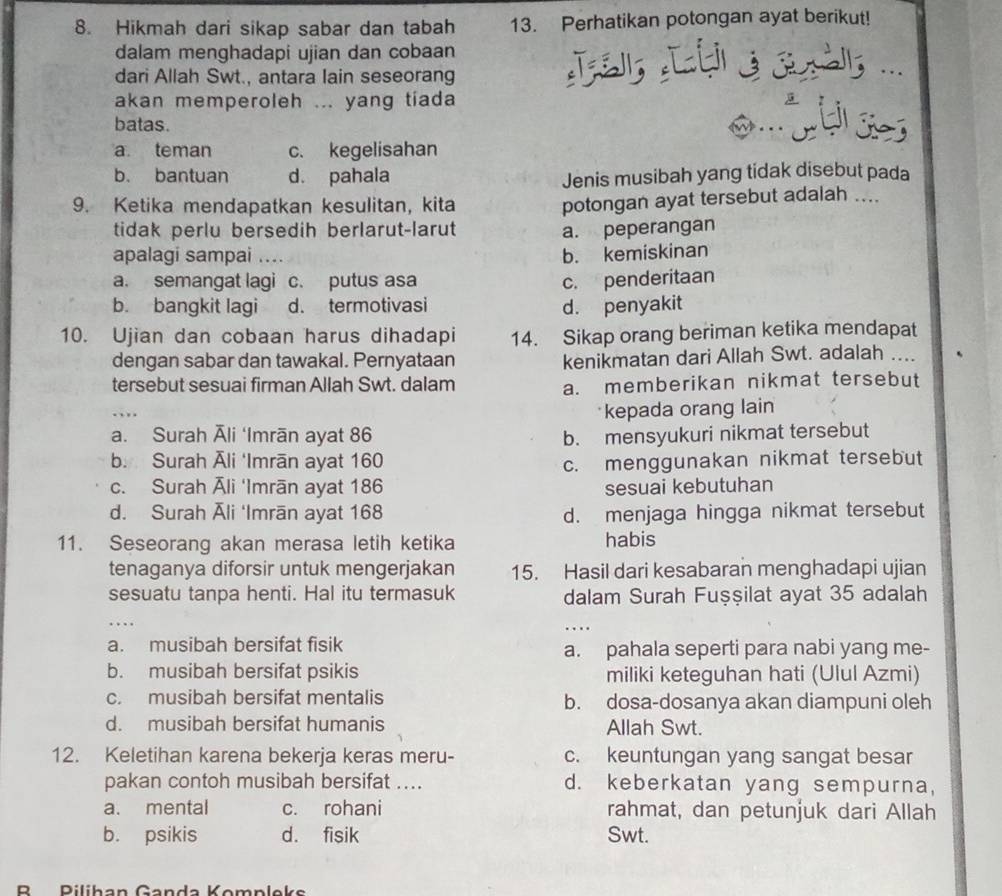 8. Hikmah dari sikap sabar dan tabah
dalam menghadapi ujian dan cobaan
dari Allah Swt., antara lain seseorang
akan memperoleh ... yang tiada
batas.
a. teman c. kegelisahan
b. bantuan d. pahala
9. Ketika mendapatkan kesulitan, kita
tidak perlu bersedih berlarut-larut
apalagi sampai ....
a. semangat lagi c. putus asa
b. bangkit lagi d. termotivasi
10. Ujian dan cobaan harus dihadapi
dengan sabar dan tawakal. Pernyataan
tersebut sesuai firman Allah Swt. dalam
....
a. Surah Āli ‘Imrān ayat 86
b. Surah Āli ‘Imrān ayat 160
c. Surah Āli ‘Imrān ayat 186
d. Surah Āli ‘Imrān ayat 168
11. Seseorang akan merasa letih ketika
tenaganya diforsir untuk mengerjakan
sesuatu tanpa henti. Hal itu termasuk
....
a. musibah bersifat fisik
b. musibah bersifat psikis
c. musibah bersifat mentalis
d. musibah bersifat humanis
12. Keletihan karena bekerja keras meru-
pakan contoh musibah bersifat ....
a. mental c. rohani
b. psikis d. fisik
B. Pilihan Ganda Kompleks
13. Perhatikan potongan ayat berikut!
... وَالصّٰبِرِيْنَ فِى الْبَأْسَاۤءِ وَالضَّرَّاۤءِ
وَحِيْنَ الْبَأْسِۗ ... ۝١٧٧
Jenis musibah yang tidak disebut pada
potongan ayat tersebut adalah ....
a. peperangan
b. kemiskinan
c. penderitaan
d. penyakit
14. Sikap orang beriman ketika mendapat
kenikmatan dari Allah Swt. adalah ....
a. memberikan nikmat tersebut
kepada orang lain
b. mensyukuri nikmat tersebut
c. menggunakan nikmat tersebut
sesuai kebutuhan
d. menjaga hingga nikmat tersebut
habis
15. Hasil dari kesabaran menghadapi ujian
dalam Surah Fuṣṣilat ayat 35 adalah
....
a. pahala seperti para nabi yang me-
miliki keteguhan hati (Ulul Azmi)
b. dosa-dosanya akan diampuni oleh
Allah Swt.
c. keuntungan yang sangat besar
d. keberkatan yang sempurna,
rahmat, dan petunjuk dari Allah
Swt.